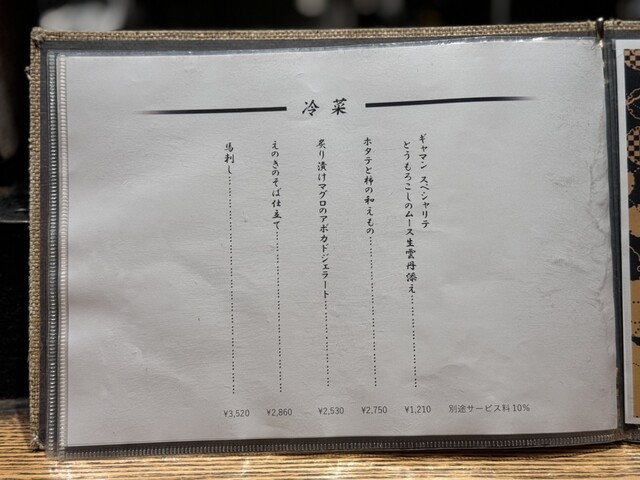 冷菜
ギヤマン スペシャリテ
とうもろこしのムース生雲丹添え
¥1,210
ホタテと柿の和えもの
¥2,750
炙り漬けマグロのアボカドジェラート
¥2,530
えのきのそば仕立て
¥2,860
馬刺し
¥3,520
別途サービス料10%